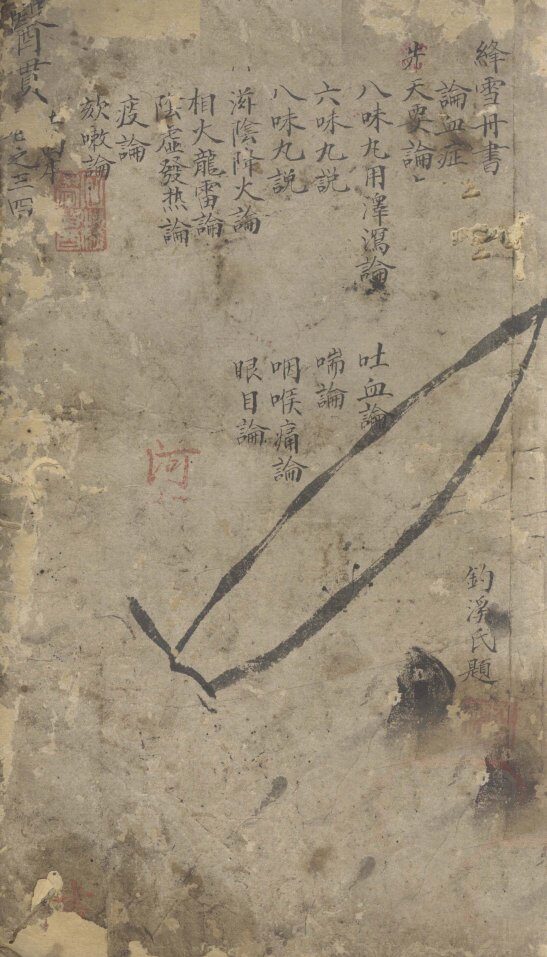 絳雪丹書
論血症
先天要論
八味丸用澤瀉論
六味丸説
八味丸説
滋陰降火論
相火龍雷論
陰虛發热論
痰論
欬嗽論
吐血論
喘論
咽喉痛論
眼目論
釣溪氏題
醫貫
卷之三四
河